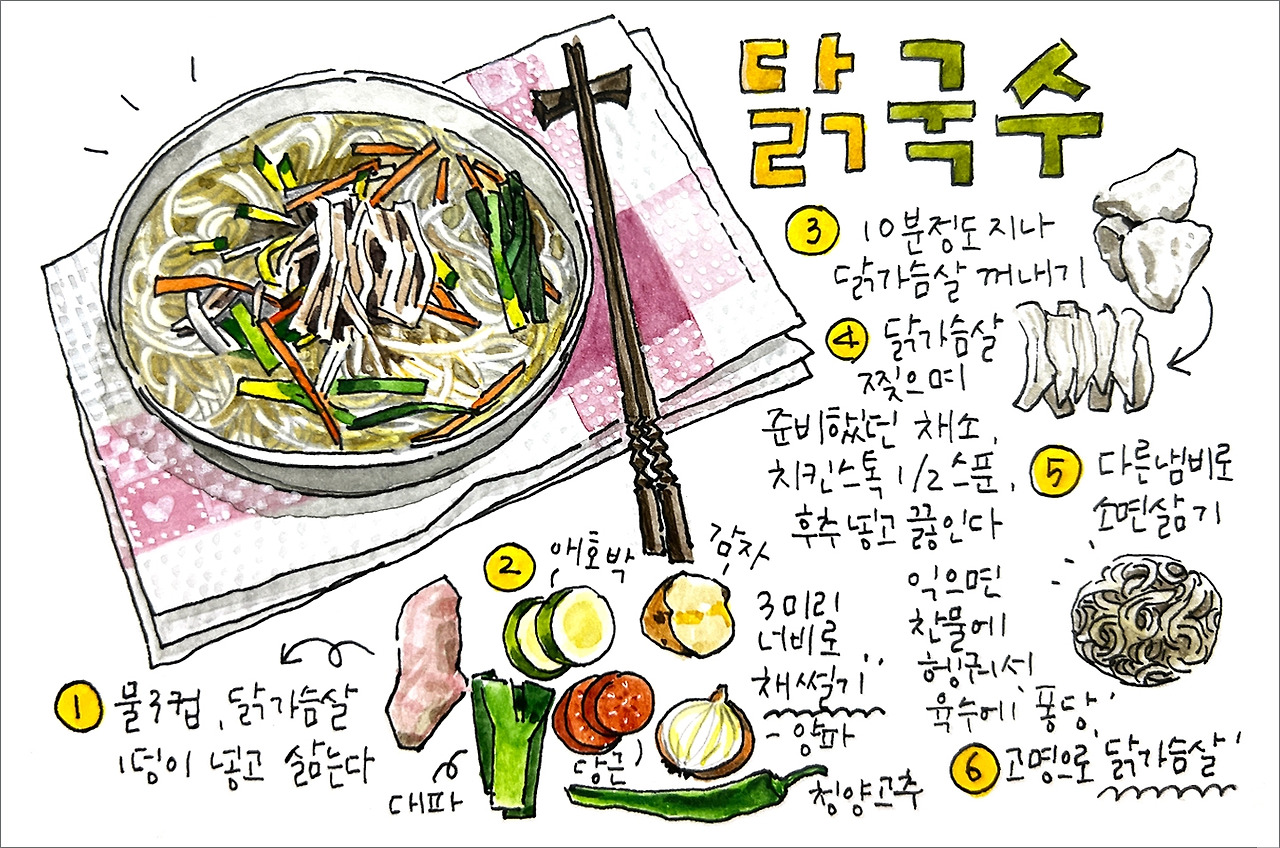 닭국수
1 물3컵, 닭가슴살
1덩이 넣고 삶는다
2
애호박
감자
대파
당근
양파
청양고추
3미리
너비로
채썰기
3 10분정도 지나
닭가슴살 꺼내기
4 닭가슴살
찢으며
준비했던 채소,
치킨스톡 1/2 스푼,
후추 넣고 끓인다
5 다른냄비로
소면삶기
익으면
찬물에
헹궈서
육수에 '퐁당'
6 고명으로 '닭가슴살'